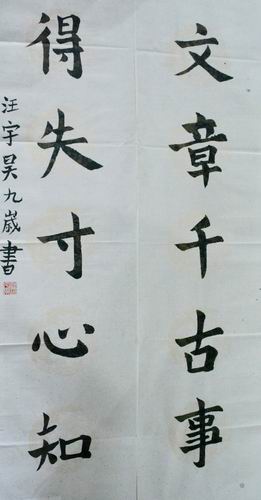 文章千古事
得失寸心知
汪宇昊九歲書